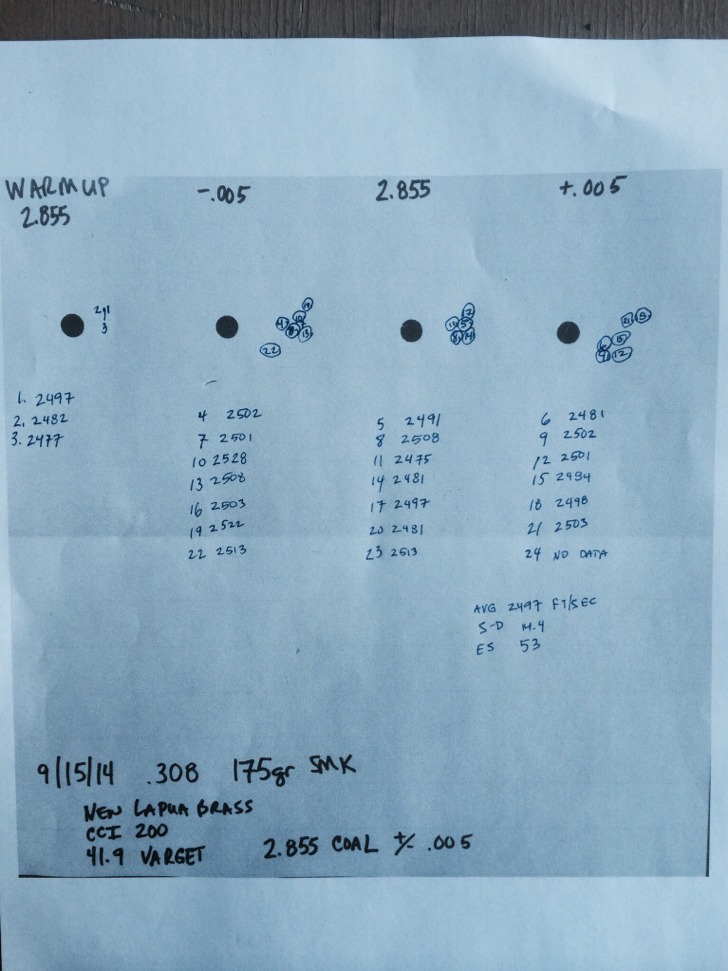 WARMUP
2.855
-.005
2.855
+.005
2,1
3
19
10
4
7
13
22
17
11 5
8 14
21 18
6 15
9 12
1. 2497
2. 2482
3. 2477
4 2502
7 2501
10 2528
13 2508
16 2503
19 2522
22 2513
5 2491
8 2508
11 2475
14 2481
17 2497
20 2481
23 2513
6 2481
9 2502
12 2501
15 2494
18 2498
21 2503
24 NO DATA
AVG 2497 FT/SEC
S-D 14.4
ES 53
9/15/14 .308 175gr SMK
NEW LAPUA BRASS
CCI 200
41.9 VARGET 2.855 COAL +/- .005